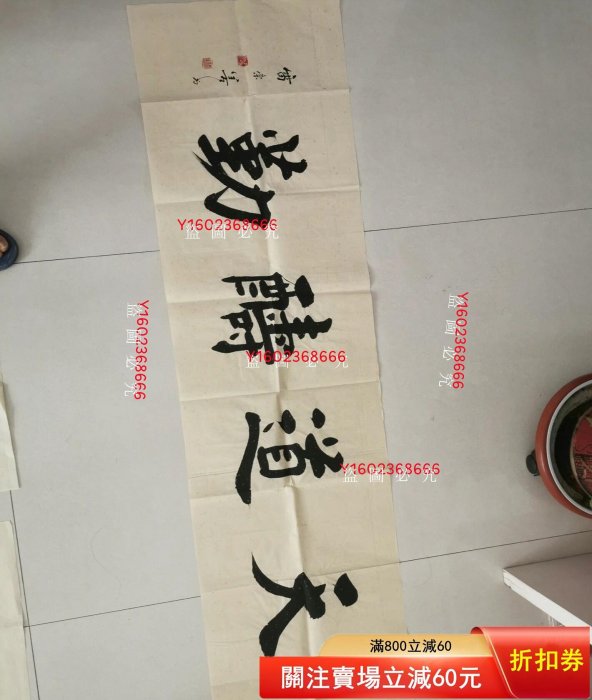 天道醻勤
Y1602368666
盜圖必究
Y1602368666
盜圖必究
Y1602368666
盜圖必究
Y1602368666
盜圖必究
Y1602368666
盜圖必究
滿800立減60
關注賣場立減60元
折扣券